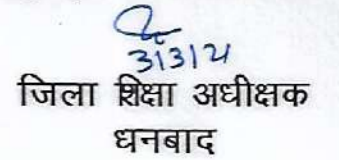 3/3/24
जिला शिक्षा अधीक्षक
धनबाद